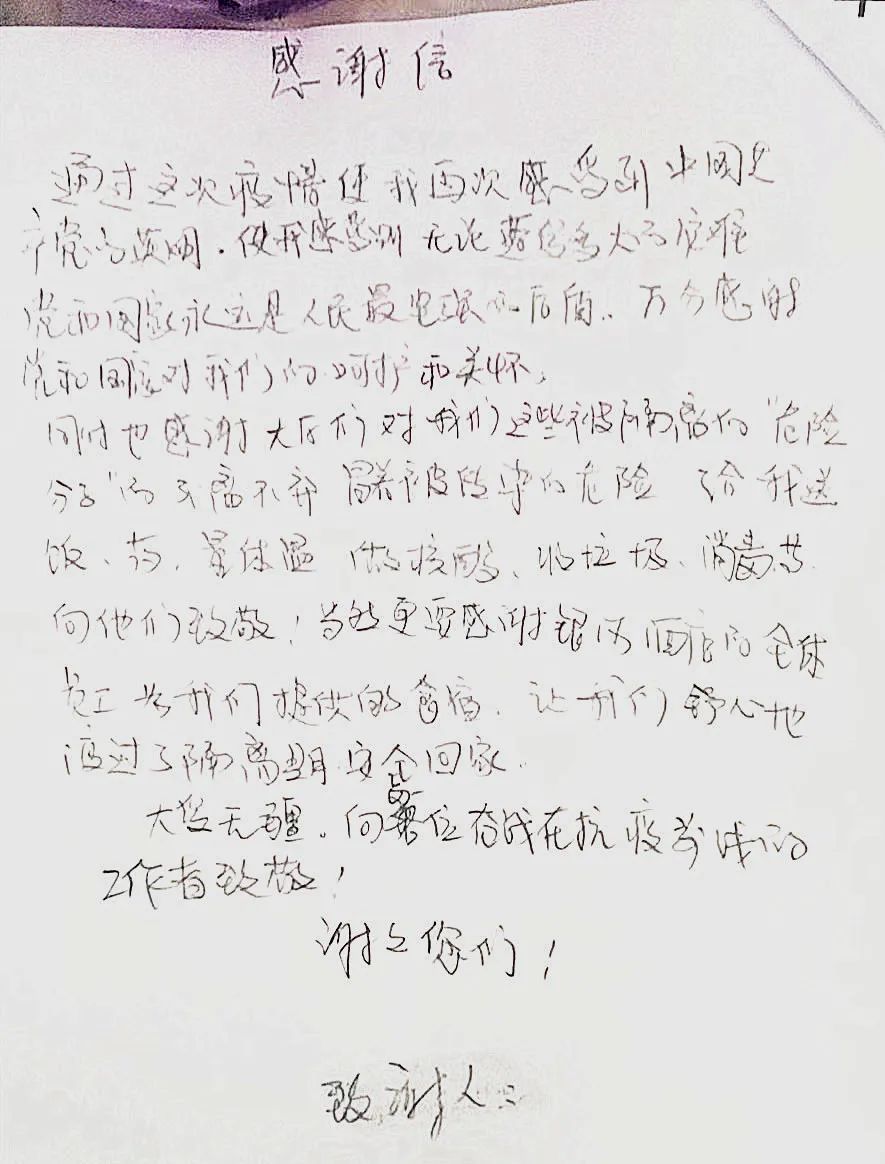 感谢信
通过这次疫情使我再次感受到中国共
产党的英明.使我感受到无论遇到多大的困难
党和国家永远是人民最坚强的后盾.万分感谢
党和国家对我们的呵护和关怀,
同时也感谢大白们对我们这些被隔离的"危险
分子"的不离不弃 冒着被传染的危险 给我送
饭、药,量体温 做核酸、收垃圾、消毒等
向他们致敬!当然更要感谢银河酒店的全体
员工为我们提供的食宿.让我们舒心地
渡过了隔离期.安全回家.
大爱无疆.向各位奋战在抗疫前线的
工作者致敬!
谢谢您们!
致谢人: